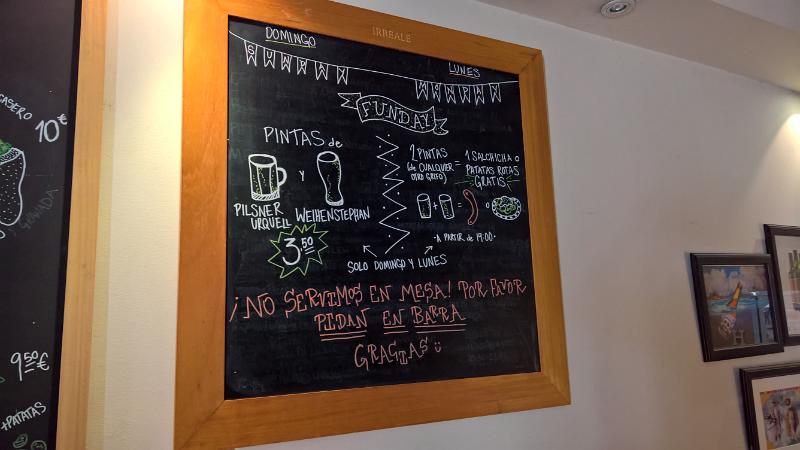 IRREALE
DOMINGO
SUNDAY
LUNES
MONDAY
FUNDAY
PINTAS de
Y
PILSNER
URQUELL
WEIHENSTEPHAN
3.50
2 PINTAS
(de CUALQUIER
OTRO GRIFO)
=
1 SALCHICHA o
PATATAS ROTAS
GRATIS
+ = o
-A PARTIR de 19:00-
SOLO DOMINGO Y LUNES
¡NO SERVIMOS EN MESA! POR FAVOR
PIDAN EN BARRA
GRACIAS
CASERO
10€
9.50€
+PATATAS